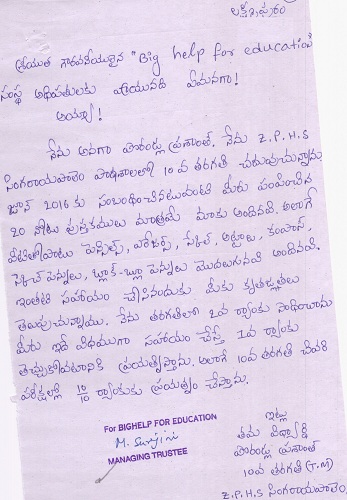 లక్ష్మీపురం
శ్రీయుత గౌరవనీయులైన "Big help for education"
సంస్థ అధిపతులకు వ్రాయునది ఏమనగా!
అయ్యా!
నేను అనగా పోరండ్ల ప్రశాంత్. నేను Z.P.H.S
సింగరాయపాలెం పాఠశాలలో 10వ తరగతి చదువుచున్నాను
జూన్ 2016 కు సంబంధించినటువంటి మీరు పంపించిన
20 నోటు పుస్తకములు మాత్రమే మాకు అందినవి. అలాగే
వీటితోపాటు పెన్సిల్స్, ఎరేజర్స్, స్కేల్, అట్టలు, కంపాస్,
స్కెచ్ పెన్నులు, బ్లాక్-బ్లూ పెన్నులు మొదలుగునవి అందినవి.
ఇంతటి సహాయం చేసినందుకు మీకు కృతజ్ఞతలు
తెలుపుచున్నాము. నేను తరగతిలో 2వ ర్యాంకు సాధించాను
మీరు ఇదే విధముగా సహాయం చేస్తే 1వ ర్యాంకు
తెచ్చుకోవటానికి ప్రయత్నిస్తాను. అలాగే 10వ తరగతి చివరి
పరీక్షల్లో 10/10 ర్యాంకుకు ప్రయత్నం చేస్తాను.
ఇట్లు
తమ విద్యార్థి
ప్రశాంత్
10వ తరగతి (T.M)
Z.P.H.S సింగరాయపాలెం
For BIGHELP FOR EDUCATION
MANAGING TRUSTEE